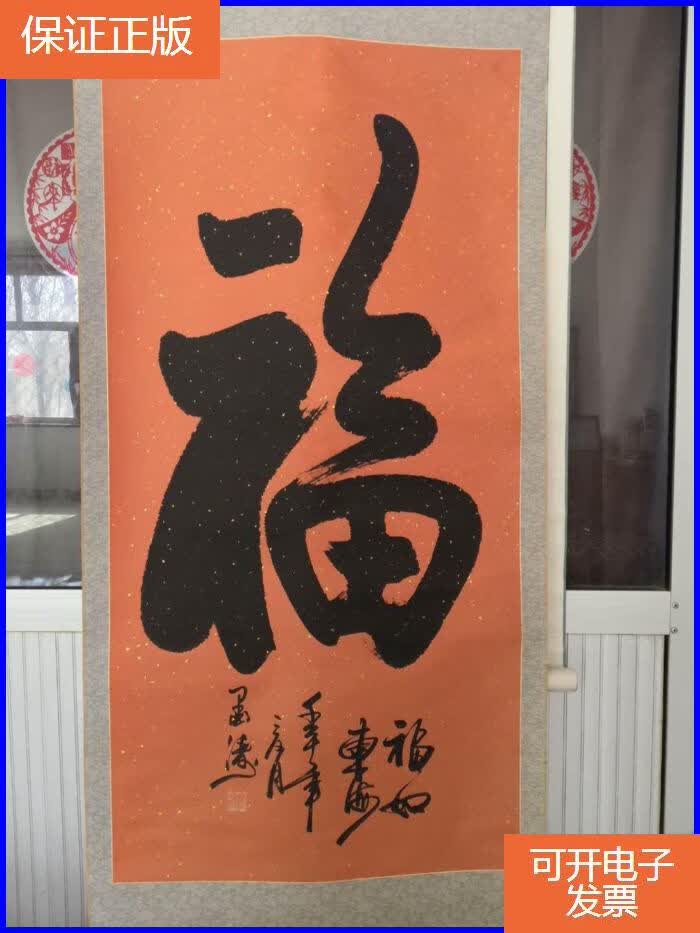 保证正版
福
福如
東海
年
月
可开电子
发票